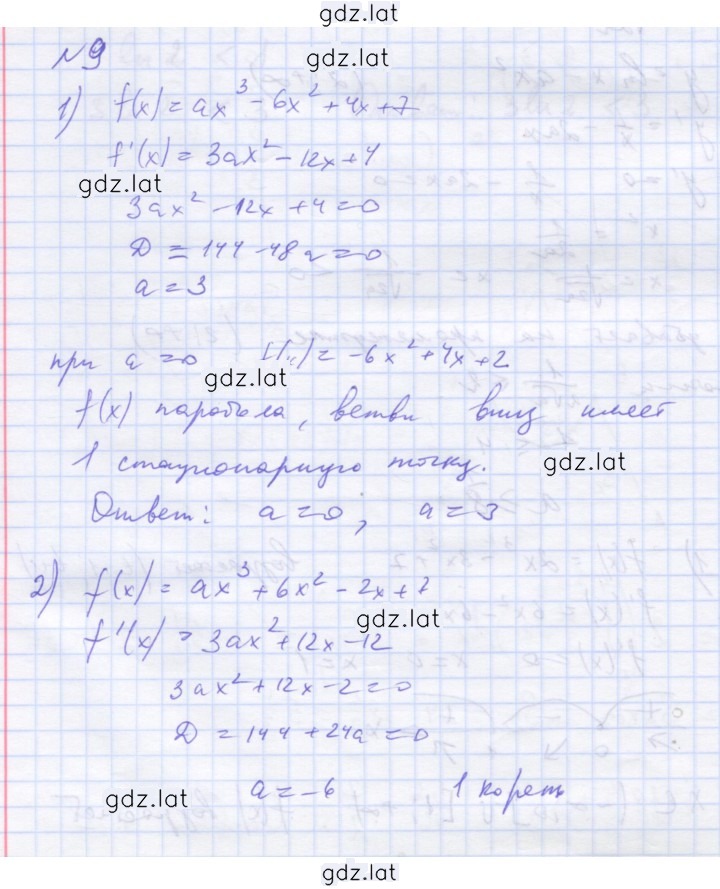 gdz.lat
№9
gdz.lat
1) f(x) = ax³ - 6x² + 4x + 7
f'(x) = 3ax² - 12x + 4
gdz.lat
3ax² - 12x + 4 = 0
D = 144 - 48a = 0
a = 3
при a = 0 f(x) = -6x² + 4x + 2
gdz.lat
f(x) парабола, ветви вниз имеет
1 стационарную точку.
gdz.lat
Ответ: a = 0; a = 3
2) f(x) = ax³ + 6x² - 2x + 7
gdz.lat
f'(x) = 3ax² + 12x - 12
3ax² + 12x - 2 = 0
D = 144 + 24a = 0
a = -6 1 корень
gdz.lat
gdz.lat